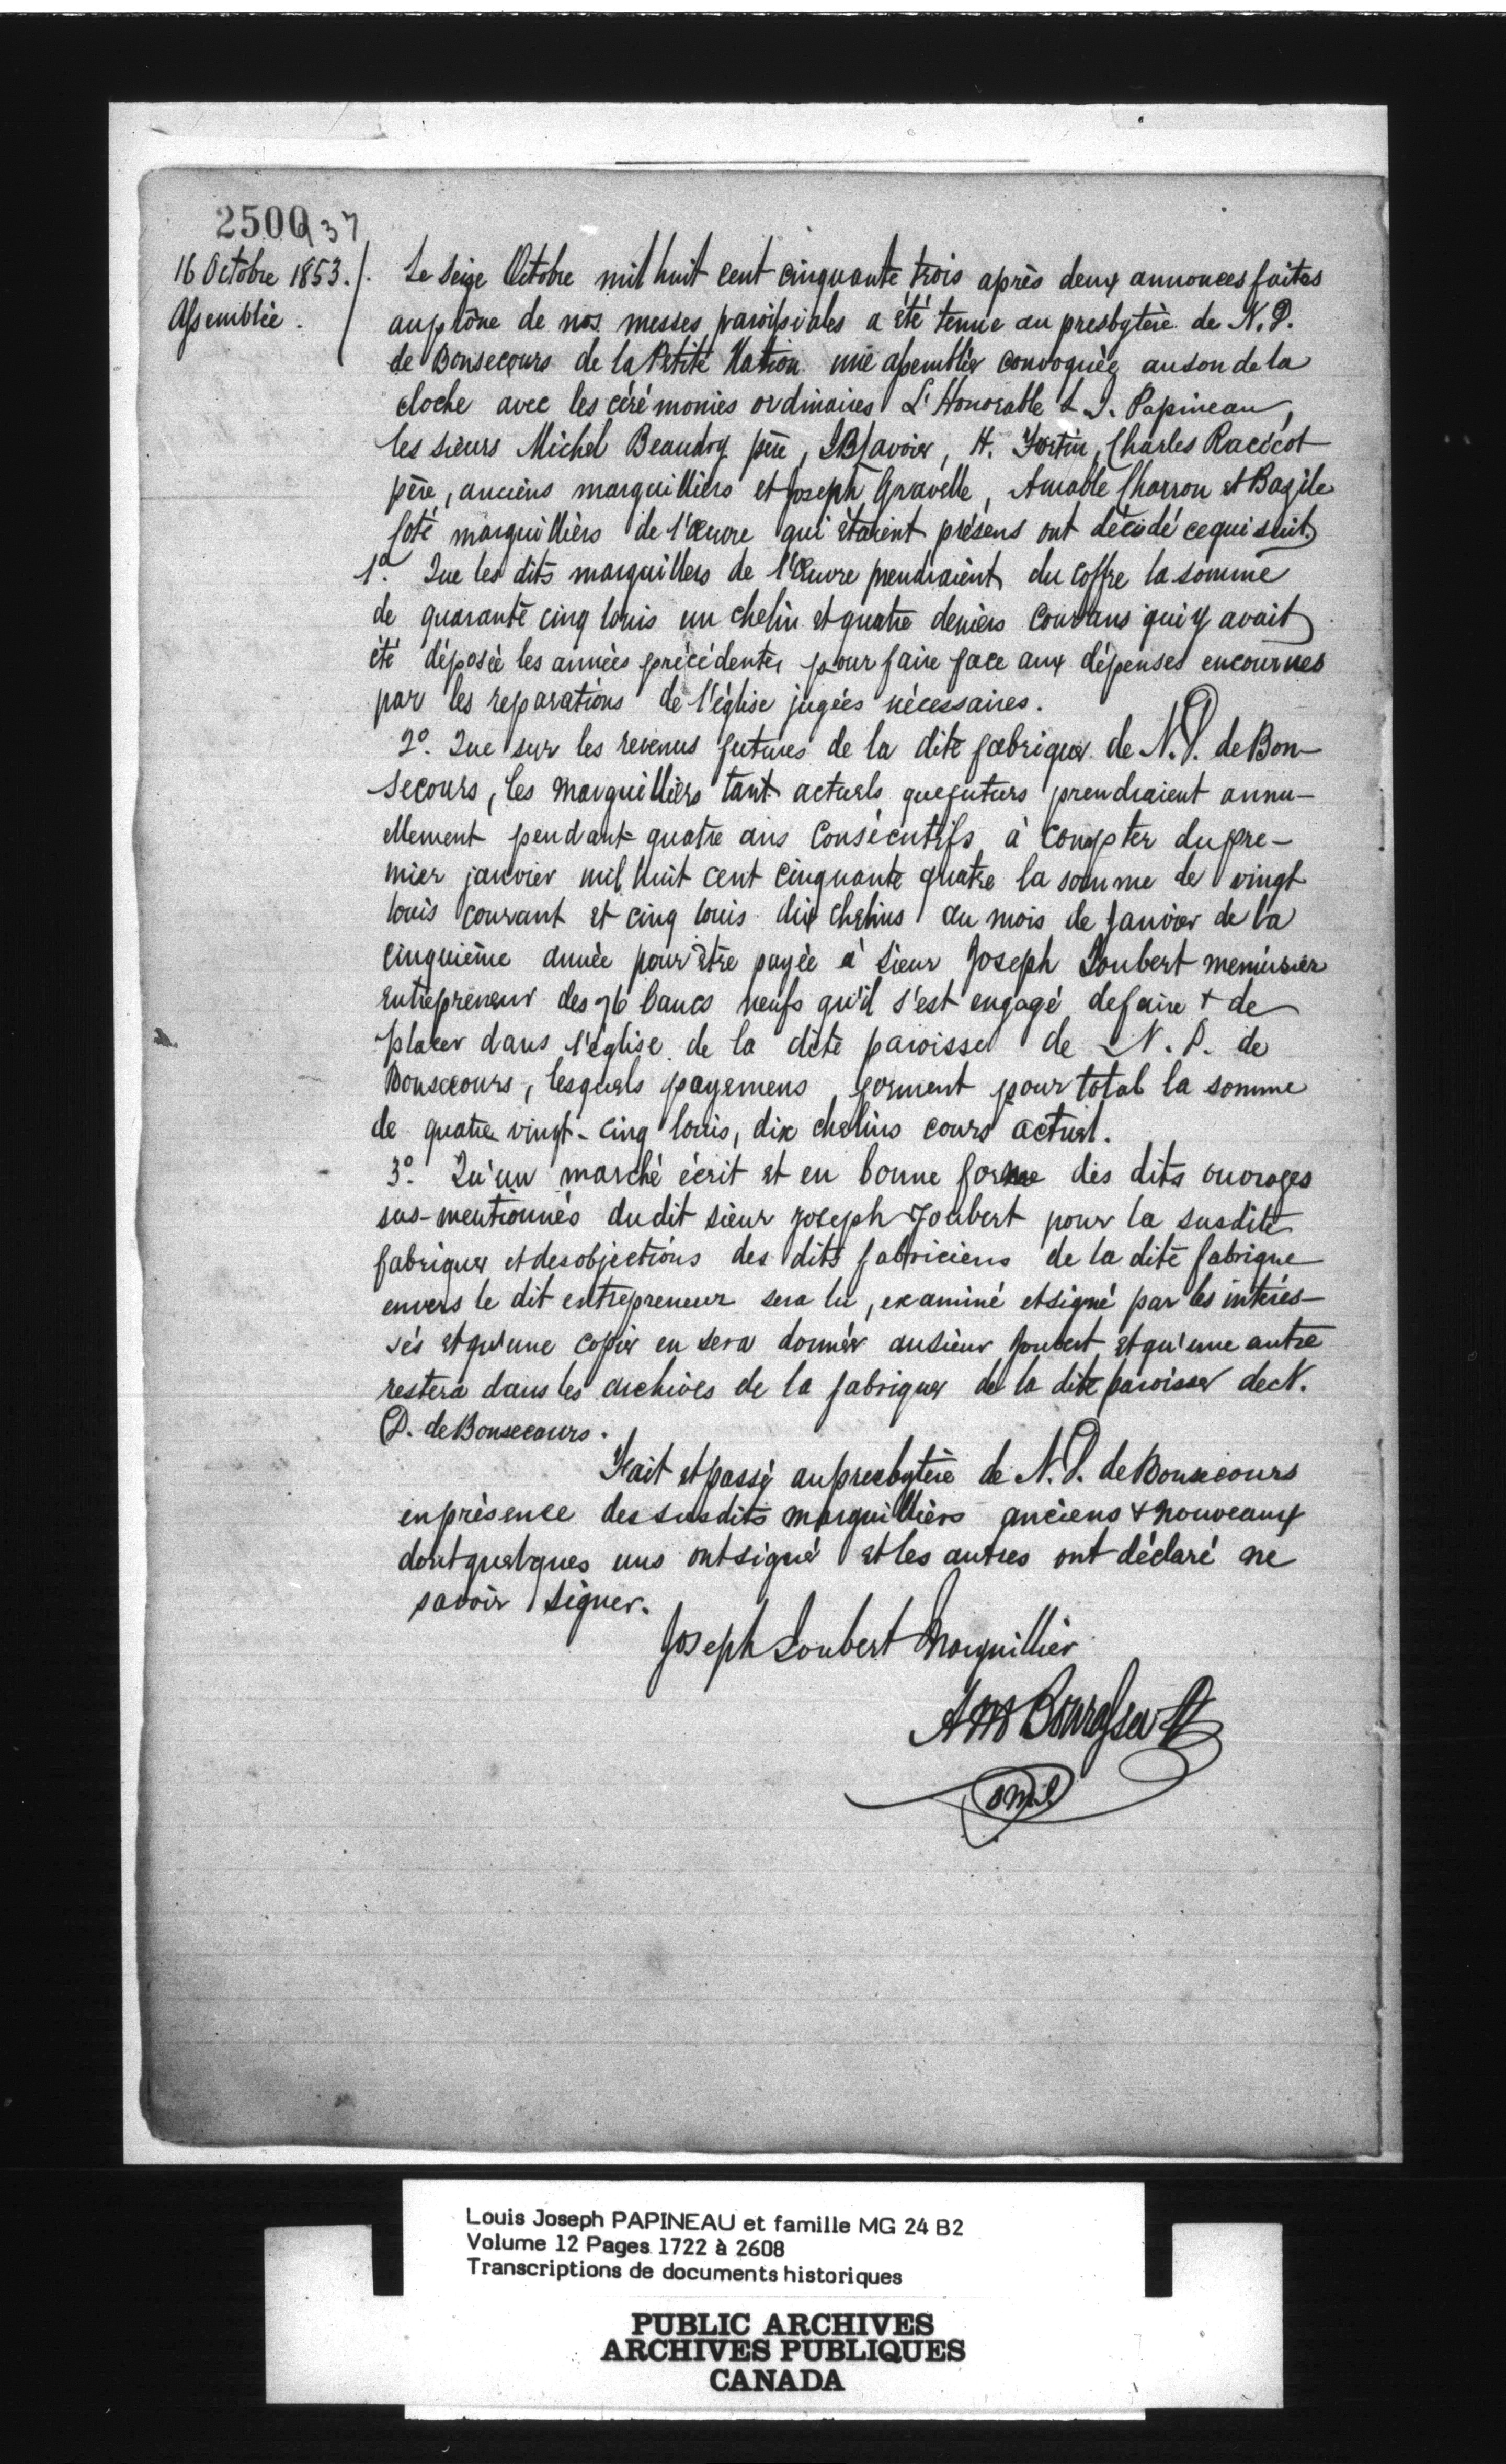 2500 37
16 Octobre 1853.
Assemblée.
Le seize Octobre mil huit cent cinquante trois après deux annonces faites
au prône de nos messes paroissiales a été tenue au presbytère de N. D.
de Bonsecours de la Petite Nation une assemblée convoquée au son de la
cloche avec les cérémonies ordinaires L'Honorable L. J. Papineau,
les sieurs Michel Beaudry père, JB Savoier, H. Fortin, Charles Racicot
père, anciens marguilliers et Joseph Gravelle, Amable Charron et Bazile
Coté marguilliers de l'Œuvre qui étaient présens ont décidé ce qui suit
1º. Que les dits marguillers de l'Œuvre prendraient du coffre la somme
de quarante cinq louis un chelin et quatre deniers courans qui y avait
été déposée les années précédentes pour faire face aux dépenses encourues
par les réparations de l'église jugées nécessaires.
2º. Que sur les revenus futures de la dite fabrique de N. D. de Bon-
secours, les marguilliers tant actuels que futurs prendraient annu-
ellement pendant quatre ans consécutifs à compter du pre-
mier janvier mil huit cent cinquante quatre la somme de vingt
louis courant et cinq louis dix chelins au mois de Janvier de la
cinquième année pour être payée à sieur Joseph Joubert menuisier
entrepreneur des 76 bancs neufs qu'il s'est engagé de faire + de
placer dans l'église de la dite paroisse de N. D. de
Bonsecours, lesquels payemens forment pour total la somme
de quatre vingt-cinq louis, dix chelins cours actuel.
3º. Qu'un marché écrit et en bonne forme des dits ouvrages
sus-mentionnés du dit sieur Joseph Joubert pour la susdite
fabrique et des objections des dits fabriciens de la dite fabrique
envers le dit entrepreneur sera lu, examiné et signé par les intéres-
sés et qu'une copie en sera donnée au sieur Joubert et qu'une autre
restera dans les archives de la fabrique de la dite paroisse de N.
D. de Bonsecours.
Fait et passé au presbytère de N. D. de Bonsecours
en présence des susdits marguilliers anciens + nouveaux
dont quelques uns ont signé et les autres ont déclaré ne
savoir signer.
Joseph Joubert Marguillier
Louis Joseph PAPINEAU et famille MG 24 B2
Volume 12 Pages 1722 à 2608
Transcriptions de documents historiques
PUBLIC ARCHIVES
ARCHIVES PUBLIQUES
CANADA